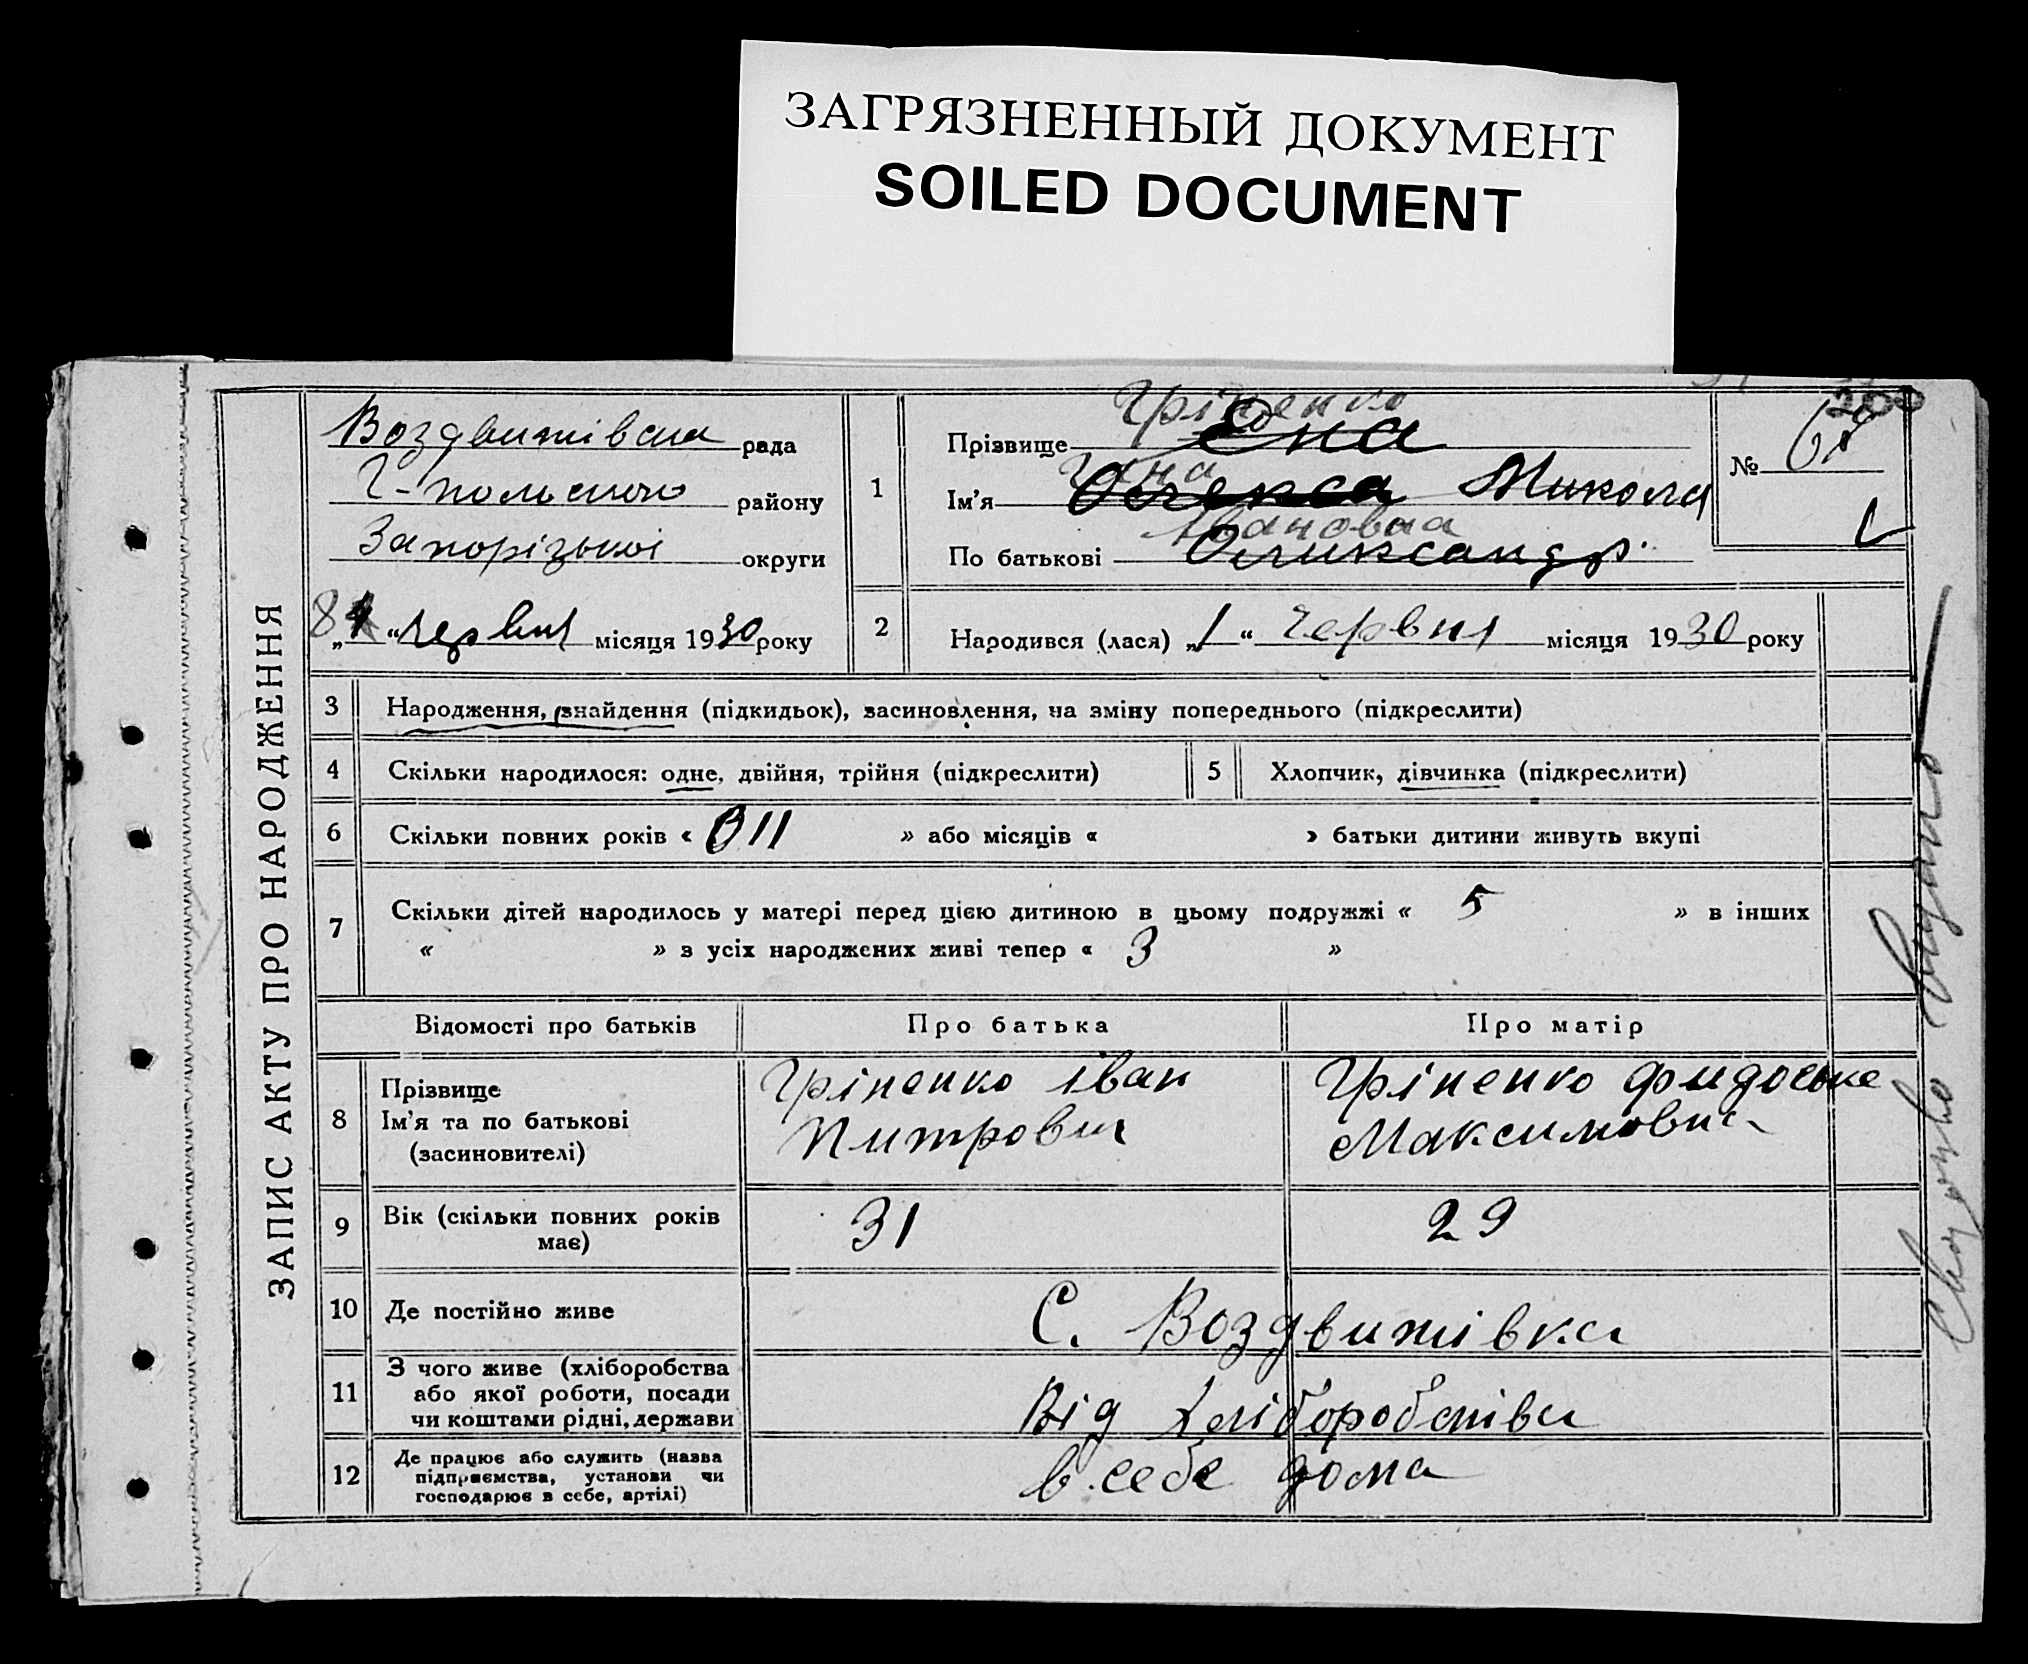 ЗАГРЯЗНЕННЫЙ ДОКУМЕНТ
SOILED DOCUMENT
ЗАПИС АКТУ ПРО НАРОДЖЕННЯ
Воздвижівська рада
Г-польського району
Запорізької округи
„8“ червня місяця 1930 року
1
Гріненко
Прізвище
Ім’я Олекса Микола
Івановна
По батькові Оликсандр.
№
2
Народився (лася) „1“ Червня місяця 1930 року
3 Народження, знайдення (підкидьок), засиновлення, на зміну попереднього (підкреслити)
4 Скільки народилося: одне, двійня, трійня (підкреслити)
5 Хлопчик, дівчинка (підкреслити)
6 Скільки повних років « 11 » або місяців « » батьки дитини живуть вкупі
7 Скільки дітей народилось у матері перед цією дитиною в цьому подружжі « 5 » в інших
« » з усіх народжених живі тепер « 3 »
Відомості про батьків Про батька Про матір
8 Прізвище
Ім’я та по батькові
(засиновителі)
Гріненко Іван
Питрович
Гріненко Фидоське
Максимовна
9 Вік (скільки повних років
має)
31 29
10 Де постійно живе С. Воздвижівка
11 З чого живе (хліборобства
або якої роботи, посади
чи коштами рідні, держави
Від Хліборобства
12 Де працює або служить (назва
підприємства, установи чи
господарює в себе, артілі)
в себе дома